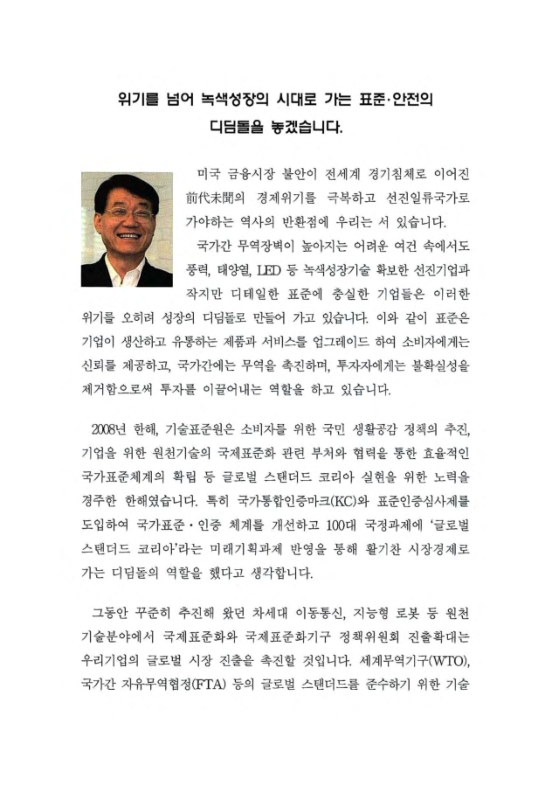 위기를 넘어 녹색성장의 시대로 가는 표준·안전의
디딤돌을 놓겠습니다.
미국 금융시장 불안이 전세계 경기침체로 이어진
前代未聞의 경제위기를 극복하고 선진일류국가로
가야하는 역사의 반환점에 우리는 서 있습니다.
국가간 무역장벽이 높아지는 어려운 여건 속에서도
풍력, 태양열, LED 등 녹색성장기술 확보한 선진기업과
작지만 디테일한 표준에 충실한 기업들은 이러한
위기를 오히려 성장의 디딤돌로 만들어 가고 있습니다. 이와 같이 표준은
기업이 생산하고 유통하는 제품과 서비스를 업그레이드 하여 소비자에게는
신뢰를 제공하고, 국가간에는 무역을 촉진하며, 투자자에게는 불확실성을
제거함으로써 투자를 이끌어내는 역할을 하고 있습니다.
2008년 한해, 기술표준원은 소비자를 위한 국민 생활공감 정책의 추진,
기업을 위한 원천기술의 국제표준화 관련 부처와 협력을 통한 효율적인
국가표준체계의 확립 등 글로벌 스탠더드 코리아 실현을 위한 노력을
경주한 한해였습니다. 특히 국가통합인증마크(KC)와 표준인증심사제를
도입하여 국가표준·인증 체계를 개선하고 100대 국정과제에 '글로벌
스탠더드 코리아'라는 미래기획과제 반영을 통해 활기찬 시장경제로
가는 디딤돌의 역할을 했다고 생각합니다.
그동안 꾸준히 추진해 왔던 차세대 이동통신, 지능형 로봇 등 원천
기술분야에서 국제표준화와 국제표준화기구 정책위원회 진출확대는
우리기업의 글로벌 시장 진출을 촉진할 것입니다. 세계무역기구(WTO),
국가간 자유무역협정(FTA) 등의 글로벌 스탠더드를 준수하기 위한 기술